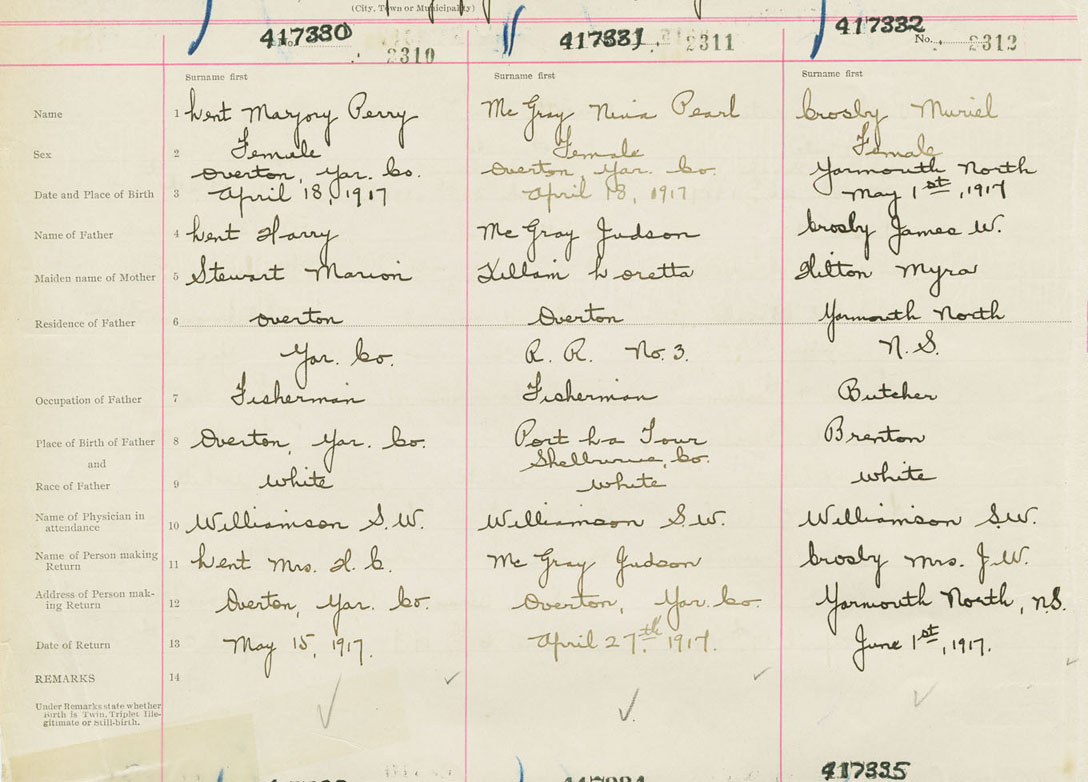 (City, Town or Municipality)
417330 417331 417332
No. 2310 2311 No. 2312
Surname first Surname first Surname first
Name 1 Lent Marjory Perry Mc Gray Nina Pearl Crosby Muriel
Sex 2 Female Female Female
Overton, Yar. Co. Overton, Yar. Co. Yarmouth North
Date and Place of Birth 3 April 18, 1917 April 18, 1917 May 1st, 1917
Name of Father 4 Lent Harry Mc Gray Judson Crosby James W.
Maiden name of Mother 5 Stewart Marion Killam Loretta Hilton Myra
Residence of Father 6 Overton Overton Yarmouth North
Yar. Co. R. R. No. 3. N. S.
Occupation of Father 7 Fisherman Fisherman Butcher
Place of Birth of Father 8 Overton, Yar. Co. Port La Tour Brenton
and Shelburne, Co.
Race of Father 9 white white white
Name of Physician in
attendance 10 Williamson S.W. Williamson S.W. Williamson S.W.
Name of Person making
Return 11 Lent Mrs. H. C. Mc Gray Judson Crosby Mrs. J.W.
Address of Person mak-
ing Return 12 Overton, Yar. Co. Overton, Yar. Co. Yarmouth North, N.S.
Date of Return 13 May 15, 1917. April 27th. 1917. June 1st, 1917.
REMARKS 14
Under Remarks state whether
Birth is Twin, Triplet Ille-
gitimate or Still-birth.
417335